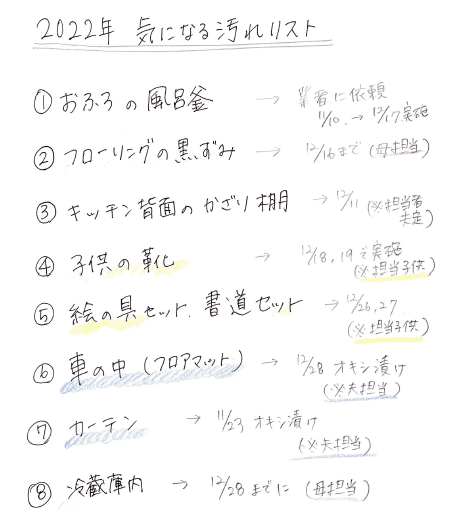 2022年 気になる汚れリスト
① おふろの風呂釜 → 業者に依頼
11/10 → 12/17 実施
② フローリングの黒ずみ → 12/16まで (母担当)
③ キッチン背面のかざり棚 → 12/11 (※担当者
未定)
④ 子供の靴 → 12/18,19で実施
(※担当子供)
⑤ 絵の具セット、書道セット → 12/26,27
(※担当子供)
⑥ 車の中 (フロアマット) → 12/28 オキシ漬け
(※夫担当)
⑦ カーテン → 11/23 オキシ漬け
(※夫担当)
⑧ 冷蔵庫内 → 12/28までに (母担当)